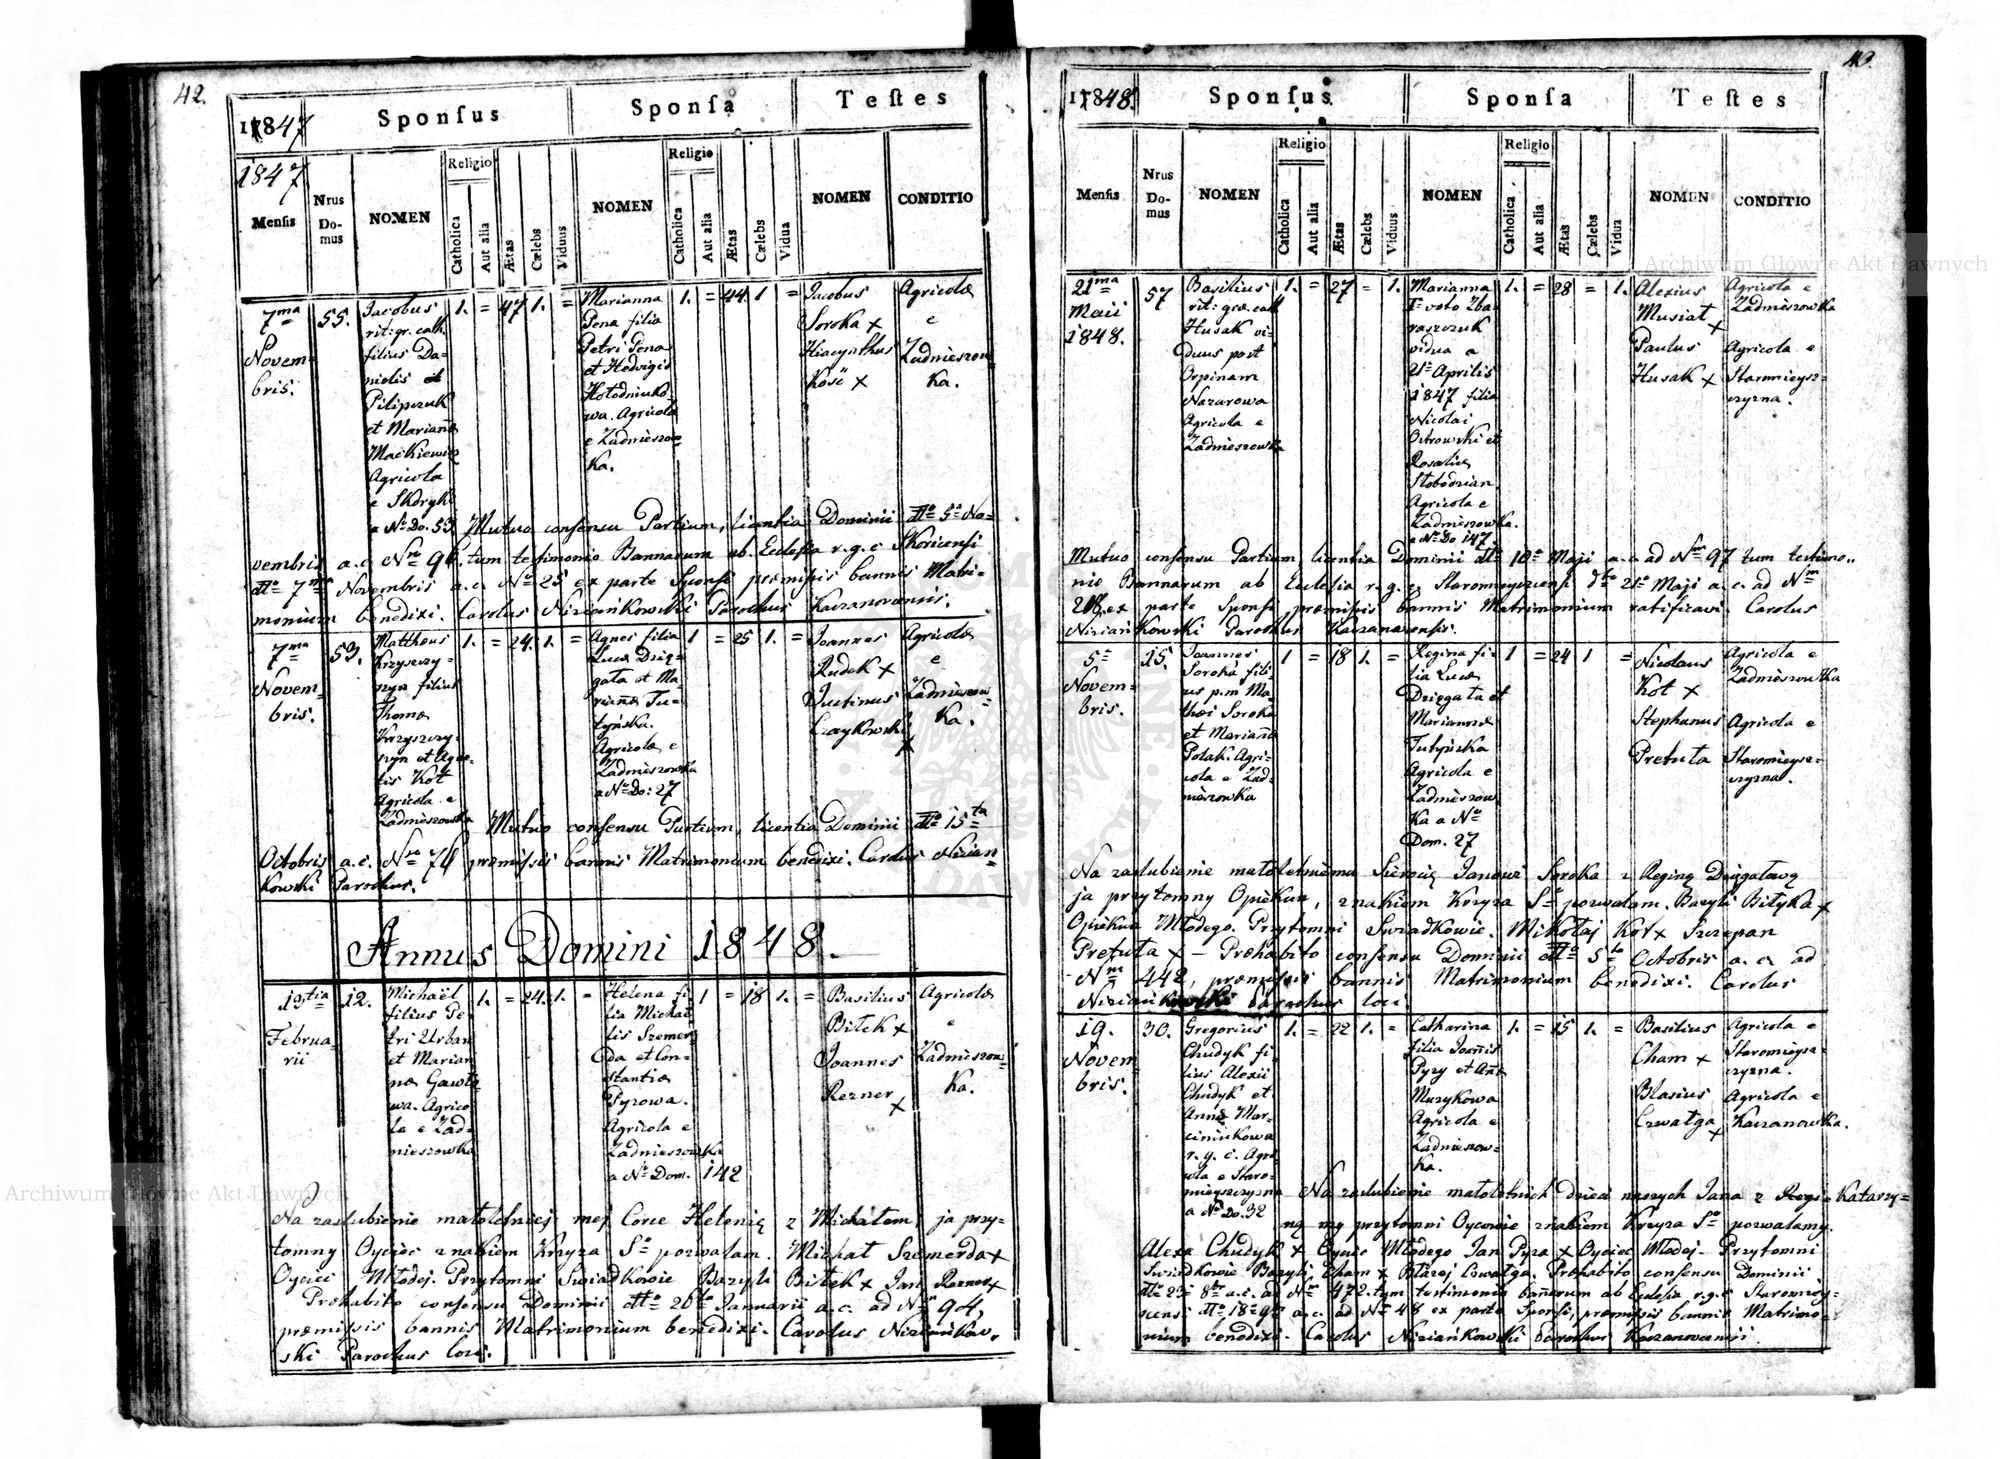 42.
1847
Sponſus
Sponſa
Teſtes
1847
Menſis
Nrus
Do-
mus
NOMEN
Religio
Catholica
Aut alia
Ætas
Cælebs
Viduus
NOMEN
Religio
Catholica
Aut alia
Ætas
Cælebs
Vidua
NOMEN
CONDITIO
7ma
Novem-
bris.
55.
Jacobus
rit: gr. cath.
filius Da-
nielis et
Pilipczuk
et Mariana
Maćkiewicz
Agricola
e Skoryk
a No Do. 53.
1. = 47 1. =
Marianna
Pena filia
Petri Pena
et Hedvigis
Hołodniuko-
wa. Agricola
e Zadnieszow-
ka.
1. = 44 1 =
Jacobus
Soroka x
Hiacynthus
Kość x
Agricolæ
e
Zadnieszow-
ka.
Mutuo consensu Partium, licentia Dominii dto 5a No-
vembris a.c. Nro 96. tum testimonio Bannarum ab Ecclesia r.g.c. Skoricensi
dto 7ma Novembris a.c. No 25 ex parte Sponsi præmissis bannis Matri-
monium benedixi. Carolus Niziańkowski Parochus Kaczanoviensis.
7ma
Novem-
bris.
53.
Mattheus
Krzyszczy-
szyn filius
Thomæ
Krzyszczy-
szyn et Agne-
tis Kot
Agricola e
Zadnieszowka
1. = 24. 1. =
Agnes filia
Lucæ Dzię-
gała et Ma-
riannæ Tu-
tyńska.
Agricolæ e
Zadnieszowka
a No Do: 27
1 = 25 1. =
Joannes
Rudek x
Justinus
Czaykowski
x
Agricolæ
e
Zadnieszow-
ka.
Mutuo consensu Partium, licentia Dominii dto 15ta
Octobris a.c. Nro 76 præmissis bannis Matrimonium benedixi. Carolus Nizian-
kowski Parochus.
Annus Domini 1848.
13tia
Februa-
rii
12.
Michaël
filius Pe-
tri Urban
et Marian-
næ Gawło-
wa. Agrico-
la e Zad-
nieszowka
1. = 24. 1. =
Helena fi-
lia Michae-
lis Szemer-
da et Con-
stantiæ
Pyzowa.
Agricola e
Zadnieszowka
a No Dom. 142
1 = 18 1. =
Basilius
Bitek x
Joannes
Rezner
x
Agricolæ
e
Zadnieszow-
ka.
Na zaslubienie małoletniej mej Córce Helenię z Michałem, ja przy-
tomny Oyciec znakiem Krzyza So pozwalam. Michał Szemerda x
Oyciec Młodej. Przytomni Swiadkowie Bazyli Bitek x Jan Rezner x
Præhabito consensu Dominii dto 26ta Januarii a.c. ad Nrm 904,
præmissis bannis Matrimonium benedixi. Carolus Niziańkow-
ski Parochus loci.
43.
1848.
Sponſus
Sponſa
Teſtes
Menſis
Nrus
Do-
mus
NOMEN
Religio
Catholica
Aut alia
Ætas
Cælebs
Viduus
NOMEN
Religio
Catholica
Aut alia
Ætas
Cælebs
Vidua
NOMEN
CONDITIO
21ma
Maii
1848.
57
Basilius
rit: græ. cath
Husak vi-
duus post
Orpinam
Nazarowa
Agricola e
Zadnieszowka
1. = 27 = 1.
Marianna
1o voto Zba-
raszczuk
vidua a
21a Aprilis
1847 filia
Nicolai
Ostrowski et
Rosaliæ
Słobodzian
Agricola e
Zadnieszowka.
a No Do 147
1. = 28 = 1.
Alexius
Musiat x
Paulus
Husak x
Agricola e
Zadnieszowka
Agricola e
Staromieysz-
czyzna.
Mutuo consensu Partium licentia Dominii dto 10a Maji a.c. ad Nrm 97 tum testimo-
nio Bannarum ab Ecclesia r.g.c. Staromieyscensi dto 21a Maji a.c. ad Nrm
28 ex parte Sponsi præmissis bannis Matrimonium ratificavi. Carolus
Niziańkowski Parochus Kaczanoviensis.
5a
Novem-
bris.
15.
Joannes
Soroka fili-
us p.m. Ma-
thæi Soroka
et Marianna
Polak. Agri-
cola e Zad-
nieszowka
1 = 18 1. =
Regina fi-
lia Lucæ
Dzięgała et
Mariannæ
Tutyńska
Agricola e
Zadnieszow-
ka a No
Dom. 27
1 = 24 1 =
Nicolaus
Kot x
Stephanus
Pretuta
Agricola e
Zadnieszowka
Agricola e
Staromieysz-
czyzna.
Na zaslubienie małoletniemu Sierocie Janowi Soroka z Reginą Dzięgałową
ja przytomny Opiekun, znakiem Krzyza So pozwalam. Bazyli Bityka x
Opiekun Młodego. Przytomni Swiadkowie. Mikołaj Kot x Szczepan
Pretuta x - Præhabito consensu Dominii dto 5ta Octobris a.c. ad
Nrm 442, præmissis bannis Matrimonium benedixi. Carolus
Niziańkowski Parochus loci
19.
Novem-
bris.
30.
Gregorius
Chudyk fi-
lius Alexii
Chudyk et
Annæ Mar-
ciniukowa
r.g.c. Agri-
cola e Staro-
mieyszczyzna
a No Do. 32
1. = 22 1. =
Catharina
filia Joannis
Pyzy et Annæ
Muzykowa
Agricola e
Zadnieszow-
ka.
1. = 15 1. =
Basilius
Cham x
Blasius
Czwatga x
Agricola e
Staromieysz-
czyzna.
Agricola e
Kaczanowka.
Na zaslubienie małoletnich dzieci naszych Jana z Regi- Katarzy-
ną my przytomni Oycowie znakiem Krzyza So pozwalamy.
Alexa Chudyk x Oyciec Młodego Jan Pyza x Oyciec Młodej - Przytomni
Swiadkowie Bazyli Cham x Błazej Czwatga. Præhabito consensu Dominii
dto 23a 8bris a.c. ad Nrm 472. tum testimonio bannarum ab Ecclesia r.g.c. Staromiey-
scensi dto 18a 9bris a.c. ad Nrm 48 ex parte Sponsi, præmissis bannis Matrimo-
nium benedixi. Carolus Niziańkowski Parochus Kaczanoviensis
Archiwum Główne Akt Dawnych
Archiwum Główne Akt Dawnych